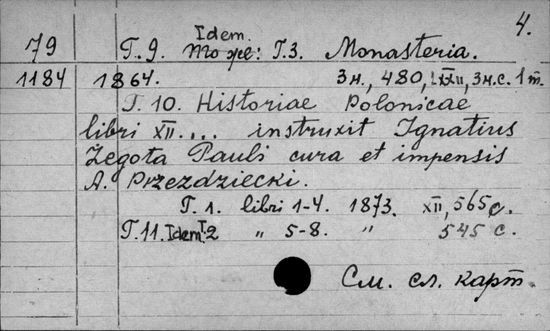 4.
79 Т. 9. Idem. То же: Т.3. Monasteria.
1184 1864. 3н., 480, LXXII, 3н.с. 1 т.
Т. 10. Historiae Polonicae
libri XII.... instruxit Ignatius
Żegota Pauli cura et impensis
A. Przezdziecki.
Т. 1. libri 1-4. 1873. XII, 565с.
Т. 11. Idem Т.2 " 5-8. " 545 с.
См. сл. карт.